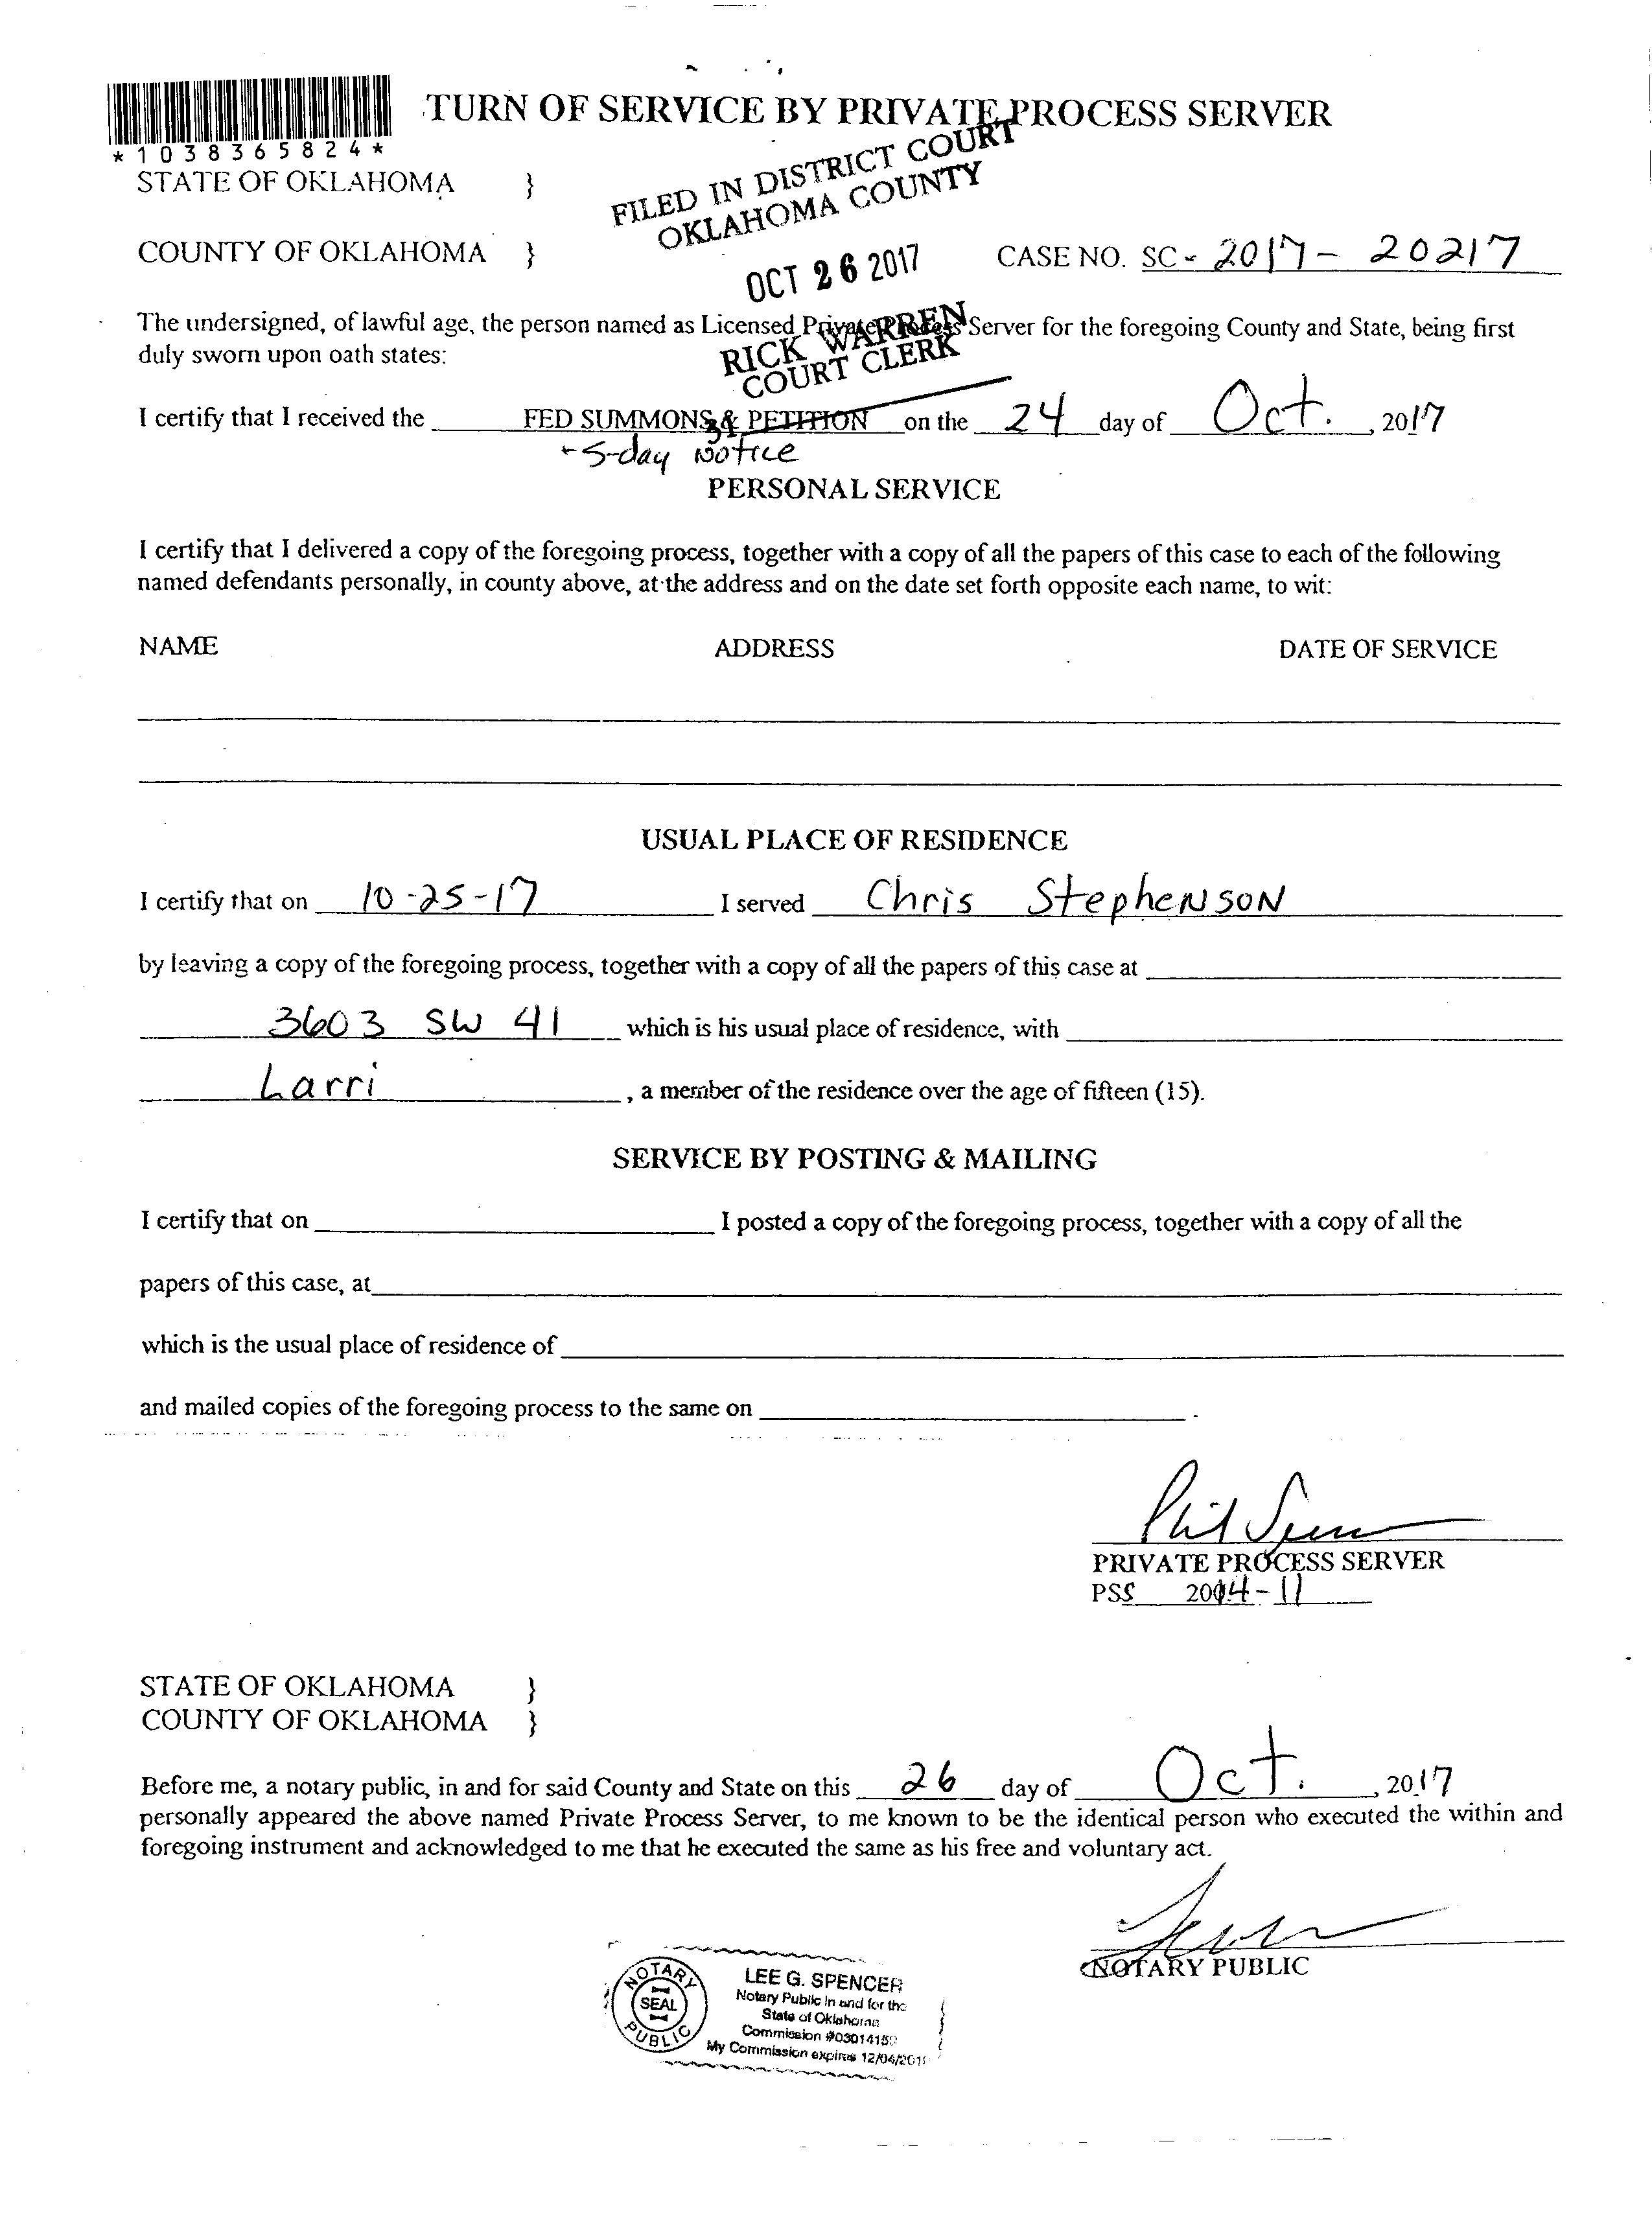 TURN OF SERVICE BY PRIVATE PROCESS SERVER
*1038365824*
FILED IN DISTRICT COURT
OKLAHOMA COUNTY
STATE OF OKLAHOMA }
COUNTY OF OKLAHOMA } CASE NO. SC - 2017 - 20217
OCT 26 2017
The undersigned, of lawful age, the person named as Licensed Private Process Server for the foregoing County and State, being first
duly sworn upon oath states:
RICK WARREN
COURT CLERK
I certify that I received the FED SUMMONS & PETITION on the 24 day of Oct. , 2017
+ 5-day Notice
PERSONAL SERVICE
I certify that I delivered a copy of the foregoing process, together with a copy of all the papers of this case to each of the following
named defendants personally, in county above, at the address and on the date set forth opposite each name, to wit:
NAME ADDRESS DATE OF SERVICE
USUAL PLACE OF RESIDENCE
I certify that on 10-25-17 I served Chris Stephenson
by leaving a copy of the foregoing process, together with a copy of all the papers of this case at
3603 SW 41 which is his usual place of residence, with
Larri , a member of the residence over the age of fifteen (15).
SERVICE BY POSTING & MAILING
I certify that on I posted a copy of the foregoing process, together with a copy of all the
papers of this case, at
which is the usual place of residence of
and mailed copies of the foregoing process to the same on .
PRIVATE PROCESS SERVER
PSS 2014-11
STATE OF OKLAHOMA }
COUNTY OF OKLAHOMA }
Before me, a notary public, in and for said County and State on this 26 day of Oct. , 2017
personally appeared the above named Private Process Server, to me known to be the identical person who executed the within and
foregoing instrument and acknowledged to me that he executed the same as his free and voluntary act.
NOTARY PUBLIC
NOTARY
SEAL
PUBLIC
LEE G. SPENCER
Notary Public in and for the
State of Oklahoma
Commission
My Commission expires